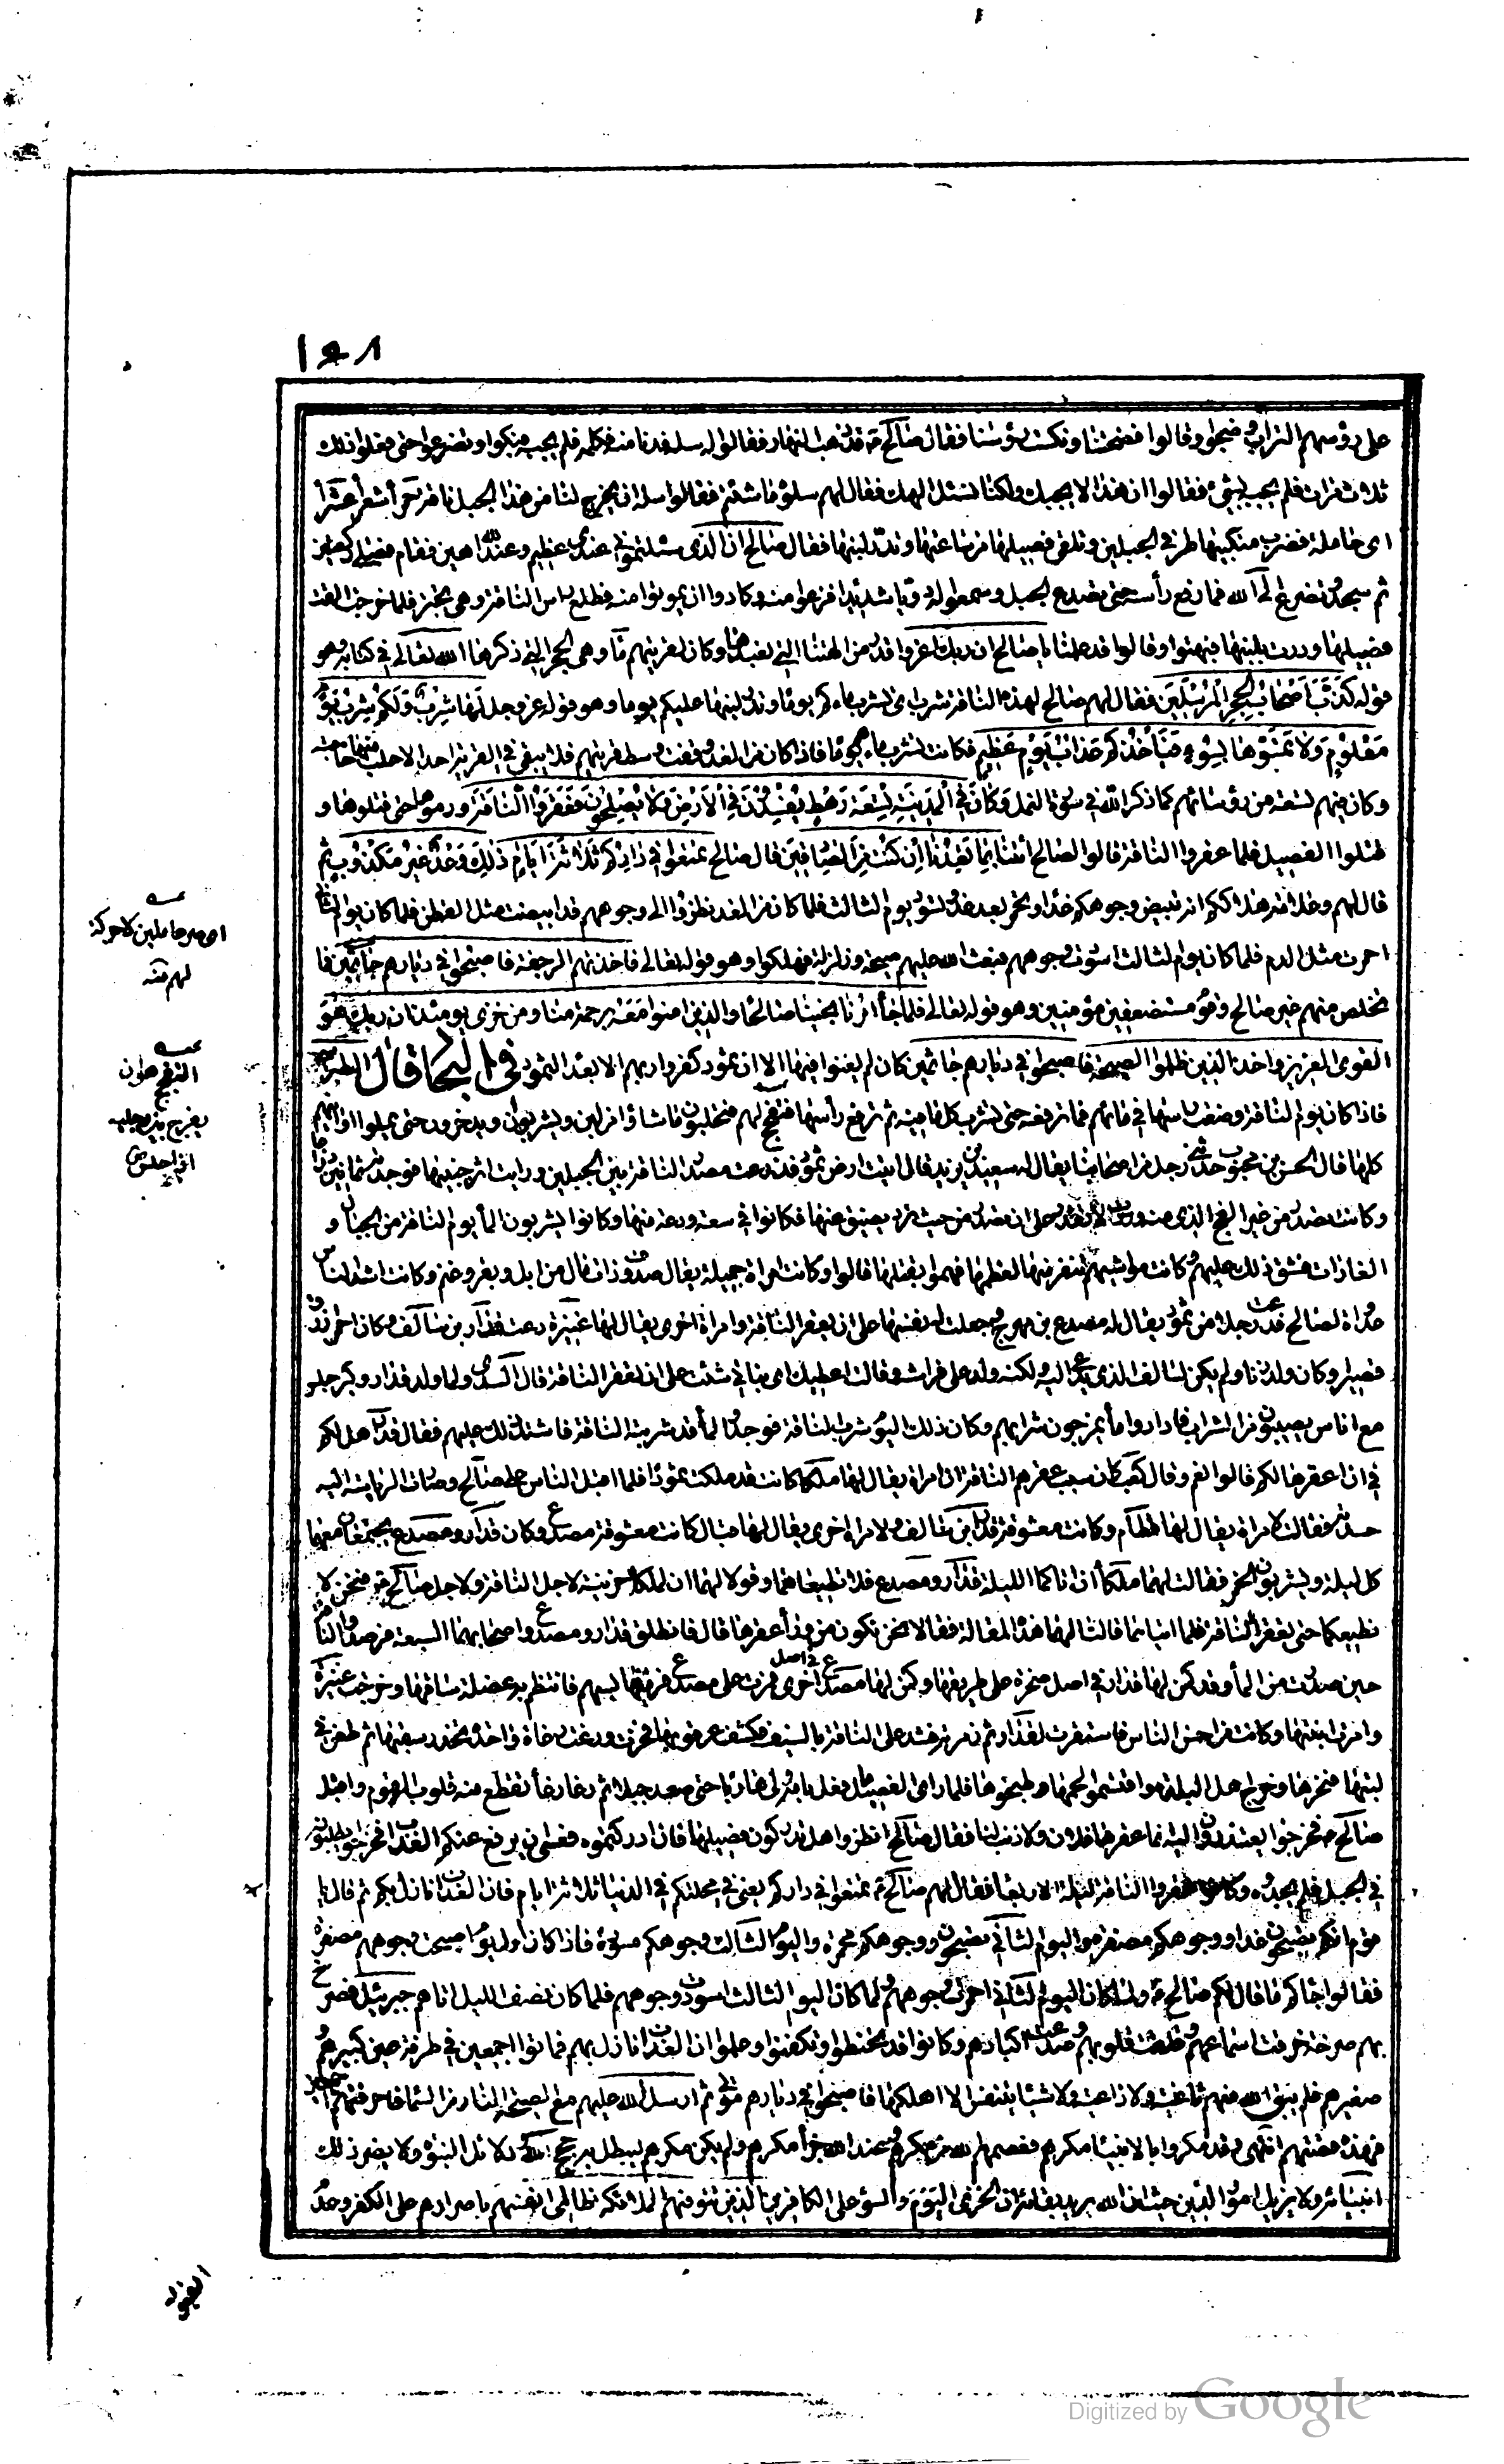 ١٥٨
على رؤسهم التراب وضجوا وقالوا فضحتنا ونكست رؤسنا فقال صالح ع قد ذهب النهار فقالوا له سله فدنا منه فكلمه فلم يجبه فبكوا وتضرعوا حتى فعلوا ذلك
ثلاث مرات فلم يجب بشئ فقالوا ان هذا لا يجيبك ولكنا نسئل الهك فقال لهم سلوا ما شئتم فقالوا سله ان يخرج لنا من هذا الجبل ناقة حمراء شعراء عشراء
اى حاملة فضرب منكبيها طرفى الجبلين وتلقى فصيلها من ساعتها وتدر لبنها فقال صالح ان الذى سئلتمونى عندى عظيم وعند الله هين فقام فصلى ركعتين
ثم سجد وتضرع الى الله فما رفع رأسه حتى تصدع الجبل وسمعوا له دويا شديدا فزعوا منه وكادوا ان يموتوا منه فطلع رأس الناقة وهى تجتر فلما خرجت القت
فصيلها ودرت بلبنها فبهتوا وقالوا قد علمنا يا صالح ان ربك اعز واقدر من الهتنا التى نعبدها وكان لقريتهم ماء وهى الحجر التى ذكرها الله تعالى فى كتابه وهو
قوله كَذَّبَ أَصْحَابُ الْحِجْرِ الْمُرْسَلِينَ فقال لهم صالح لهذه الناقة شرب اى تشرب ماءكم يوما وتدر لبنها عليكم يوما وهو قوله عز وجل لَهَا شِرْبٌ وَلَكُمْ شِرْبُ يَوْمٍ
مَعْلُومٍ وَلَا تَمَسُّوهَا بِسُوءٍ فَيَأْخُذَكُمْ عَذَابُ يَوْمٍ عَظِيمٍ فكانت تشرب ماءهم يوما فاذا كان من الغد وقفت وسط قريتهم فلا يبقى فى القرية احد الا حلب منها حاجته
وكان فيهم تسعة من رؤسائهم كما ذكر الله فى سورة النمل وَكَانَ فِي الْمَدِينَةِ تِسْعَةُ رَهْطٍ يُفْسِدُونَ فِي الْأَرْضِ وَلَا يُصْلِحُونَ فعقروا الناقة ورموها حتى قتلوها و
قتلوا الفصيل فلما عقروا الناقة قالوا لصالح ائتنا بما تعدنا ان كنت من الصادقين قال صالح تمتعوا فى داركم ثلاثة ايام ذلك وعد غير مكذوب ثم
قال لهم وعلامة هلاككم انه تبيض وجوهكم غدا وتحمر بعد غد وتسود يوم الثالث فلما كان من الغد نظروا الى وجوههم قد ابيضت مثل القطن فلما كان يوم الثانى
احمرت مثل الدم فلما كان يوم الثالث اسودت وجوههم فبعث الله عليهم صيحة وزلزلة فهلكوا وهو قوله تعالى فاخذتهم الرجفة فاصبحوا فى دارهم جاثمين فما
تخلص منهم غير صالح وقوم مستضعفين مؤمنين وهو قوله تعالى فلما جاء امرنا نجينا صالحا والذين امنوا معه برحمة منا ومن خزى يومئذ ان ربك هو
القوى العزيز واخذ الذين ظلموا الصيحة فاصبحوا فى ديارهم جاثمين كان لم يغنوا فيها الا ان ثمود كفروا ربهم الا بعدا لثمود فى البحار قال الطبرسى
فاذا كان يوم الناقة وضعت رأسها فى مائهم فما ترفعه حتى تشرب كل ما فيه ثم ترفع رأسها فتفجج لهم فيحتلبون ما شاؤا من لبن ويشربون ويدخرون حتى يملوا اوانيهم
كلها قال الحسن بن محبوب حدثنى رجل من اصحابنا يقال له سعيد بن يزيد قال اتيت ارض ثمود فذرعت مصدر الناقة بين الجبلين ورأيت اثر جنبيها فوجدته ثمانين ذراعا
وكانت تصدر من غير الفج الذى منه وردت لا تقدر على ان تصدر من حيث ترد يضيق عنها فكانوا فى سعة ودعة منها وكانوا يشربون الماء يوم الناقة من الجبال و
المغارات فشق ذلك عليهم وكانت مواشيهم تنفر منها لعظمها فهموا بقتلها قالوا وكانت امراة جميلة يقال صدوف ذات مال من ابل وبقر وغنم وكانت اشد الناس
عداوة لصالح فدعت رجلا من ثمود يقال له مصدع بن مهرج وجعلت له نفسها على ان يعقر الناقة وامراة اخرى يقال لها عنيزة دعت قدار بن سالف وكان احمر ازرق
قصيرا وكان ولد زنا ولم يكن لسالف الذى يدعى اليه ولكنه ولد على فراشه وقالت اعطيك اى بناتى شئت على ان تعقر الناقة قال السدى ولما ولد قدار وكبر جلس
مع اناس يصيبون من الشراب فارادوا ماء يمزجون شرابهم وكان ذلك اليوم شرب الناقة فوجدوا الماء قد شربته الناقة فاشتد ذلك عليهم فقال قدار هل لكم
فى ان اعقرها لكم قالوا نعم وقال كعب كان سبب عقرهم الناقة ان امراة يقال لها ملكا كانت قد ملكت ثمودا فلما اقبل الناس على صالح وصارت الرياسة اليه
حسدته فقالت لامراة يقال لها قطام وكانت معشوقة قدار بن سالف ولامراة اخرى يقال لها قبال كانت معشوقة مصدع وكان قدار ومصدع يجتمعان معهما
كل ليلة ويشربون الخمر فقالت لهما ملكا اذا اتاكما الليلة قدار ومصدع فلا تطيعاهما وقولا لهما ان الملكة حزينة لاجل الناقة ولاجل صالح ع فنحن لا
نطيعكما حتى تعقرا الناقة فلما اتياهما قالتا لهما هذه المقالة فقالا نحن نكون من وراء عقرها قال فانطلق قدار ومصدع واصحابهما السبعة فرصدوا الناقة
حين صدرت من الماء وقد كمن لها قدار فى اصل صخرة على طريقها وكمن لها مصدع فى اصل اخرى فمرت على مصدع فرماها بسهم فانتظم به عضلة ساقها وخرجت عنيزة
وامرت ابنتها وكانت من احسن الناس فاسفرت لقدار ثم زمرته فشد على الناقة بالسيف فكشف عرقوبها فخرت ورغت رغاة واحدة تحذر سقبها ثم طعن فى
لبتها فنحرها وخرج اهل البلدة واقتسموا لحمها وطبخوها فلما راى الفصيل ما فعل بامه ولى هاربا حتى صعد جبلا ثم رغا رغاء تقطع منه قلوب القوم واقبل
صالح ع فخرجوا يعتذرون اليه انما عقرها فلان ولا ذنب لنا فقال صالح انظروا هل تدركون فصيلها فان ادركتموه فعسى ان يرفع عنكم العذاب فخرجوا يطلبونه
فى الجبل فلم يجدوه وكانوا عقروا الناقة ليلة الاربعاء فقال لهم صالح ع تمتعوا فى داركم يعنى فى محلتكم فى الدنيا ثلاثة ايام فان العذاب نازل بكم ثم قال يا
قوم انكم تصبحون غدا ووجوهكم مصفرة واليوم الثانى تصبحون ووجوهكم محمرة واليوم الثالث وجوهكم مسودة فاذا كان اول يوم اصبحت وجوههم مصفرة
فقالوا جاءكم ما قال لكم صالح ع ولما كان اليوم الثانى احمرت وجوههم ولما كان اليوم الثالث اسودت وجوههم فلما كان نصف الليل اتاهم جبرئيل فصرخ
بهم صرخة خرقت اسماعهم وفلقت قلوبهم وصدعت اكبادهم وكانوا قد تحنطوا وتكفنوا وعلموا ان العذاب نازل بهم فماتوا اجمعين فى طرفة عين كبيرهم و
صغيرهم فلم يبق الله منهم ثاغية ولا راغية ولا شيئا يتنفس الا اهلكها فاصبحوا فى ديارهم موتى ثم ارسل الله عليهم مع الصيحة النار من السماء فاحرقتهم اجمعين
فهذه قصتهم انتهى وقد مكروا بالانبياء مكرهم فعصمهم الله من مكرهم وعند الله جزاء مكرهم ولم يكن مكرهم ليبطل به حجج الله ودلائل النبوة ولا يضر ذلك
انبيائه ولا يزيل امور الدين حيث ان الله يريد بقائه ان الخزى اليوم والسوء على الكافرين الذين تتوفيهم الملائكة ظالمى انفسهم باصرارهم على الكفر وعد
عه
اى صرعا ميتين لا حركة
لهم منه
عه
التفجج هو ان
يفرج بين رجليه
اذا جلس
Digitized by Google